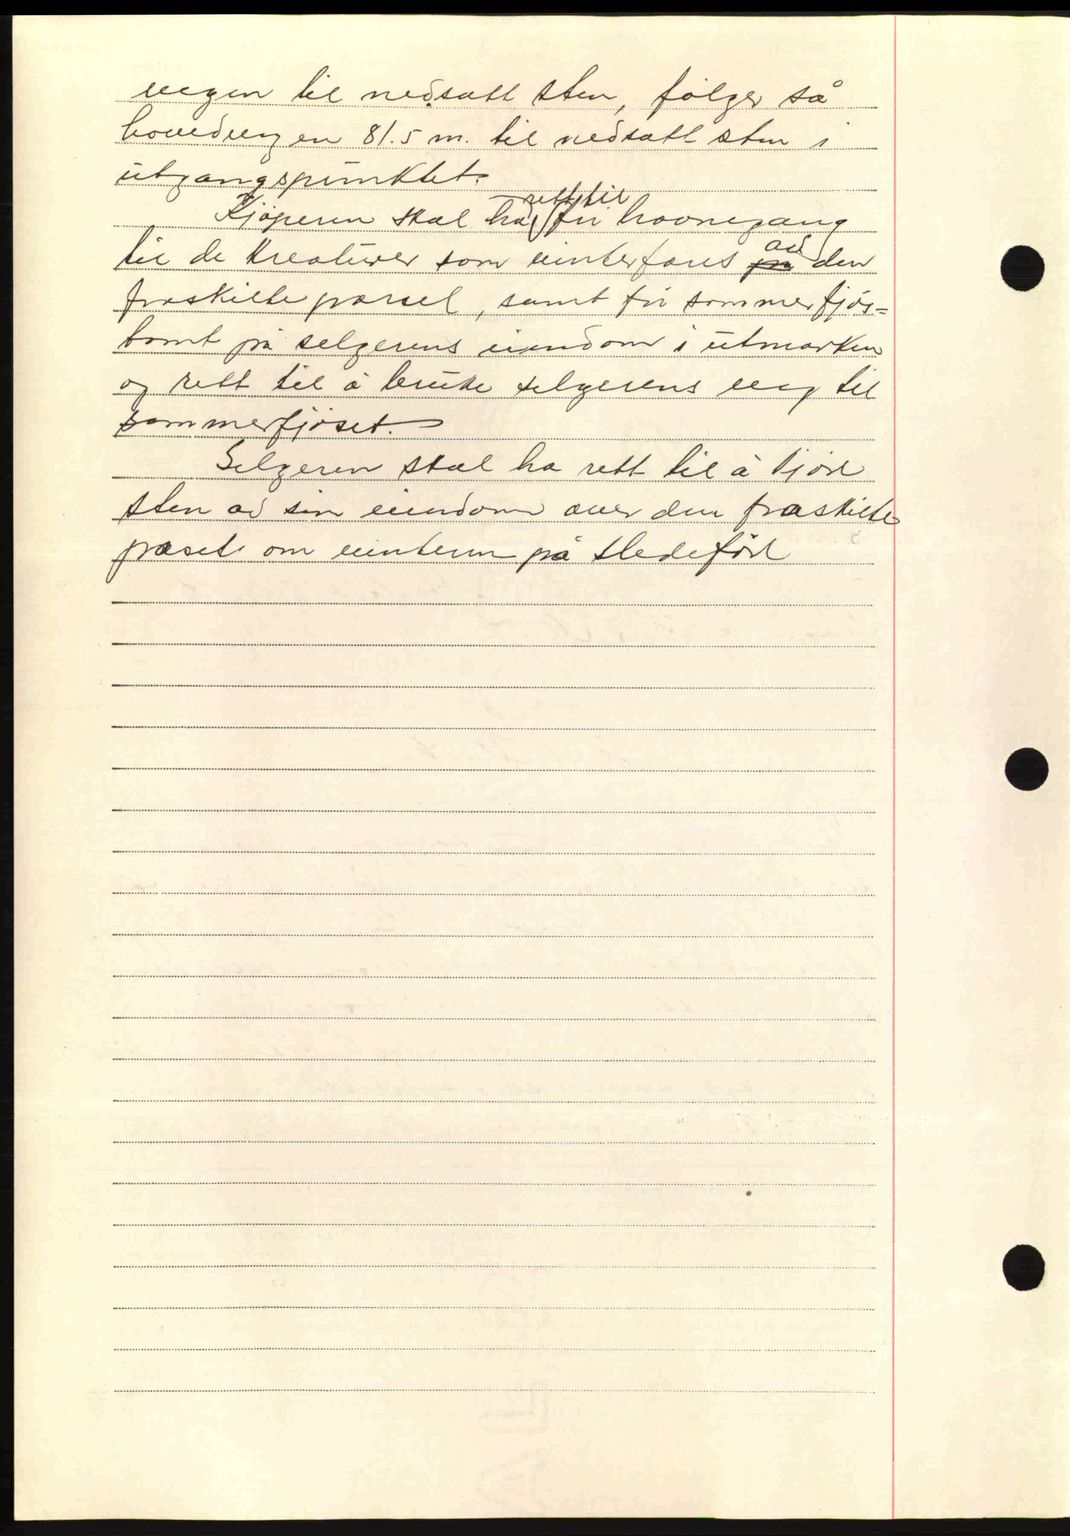 vegen til nedsatt sten, følger så
hovedvegen 81.5 m. til nedsatt sten i
utgangspunktet.
Kjøperen skal ha rett til fri havnegang
til de kreaturer som vinterfores av den
fraskilte parsel, samt fri sommerfjøs=
tomt på selgerens eiendom i utmarken
og rett til å bruke selgerens veg til
sommerfjøset.
Selgeren skal ha rett til å kjøre
sten av sin eiendom over den fraskilte
parsel om vinteren på sledeføre